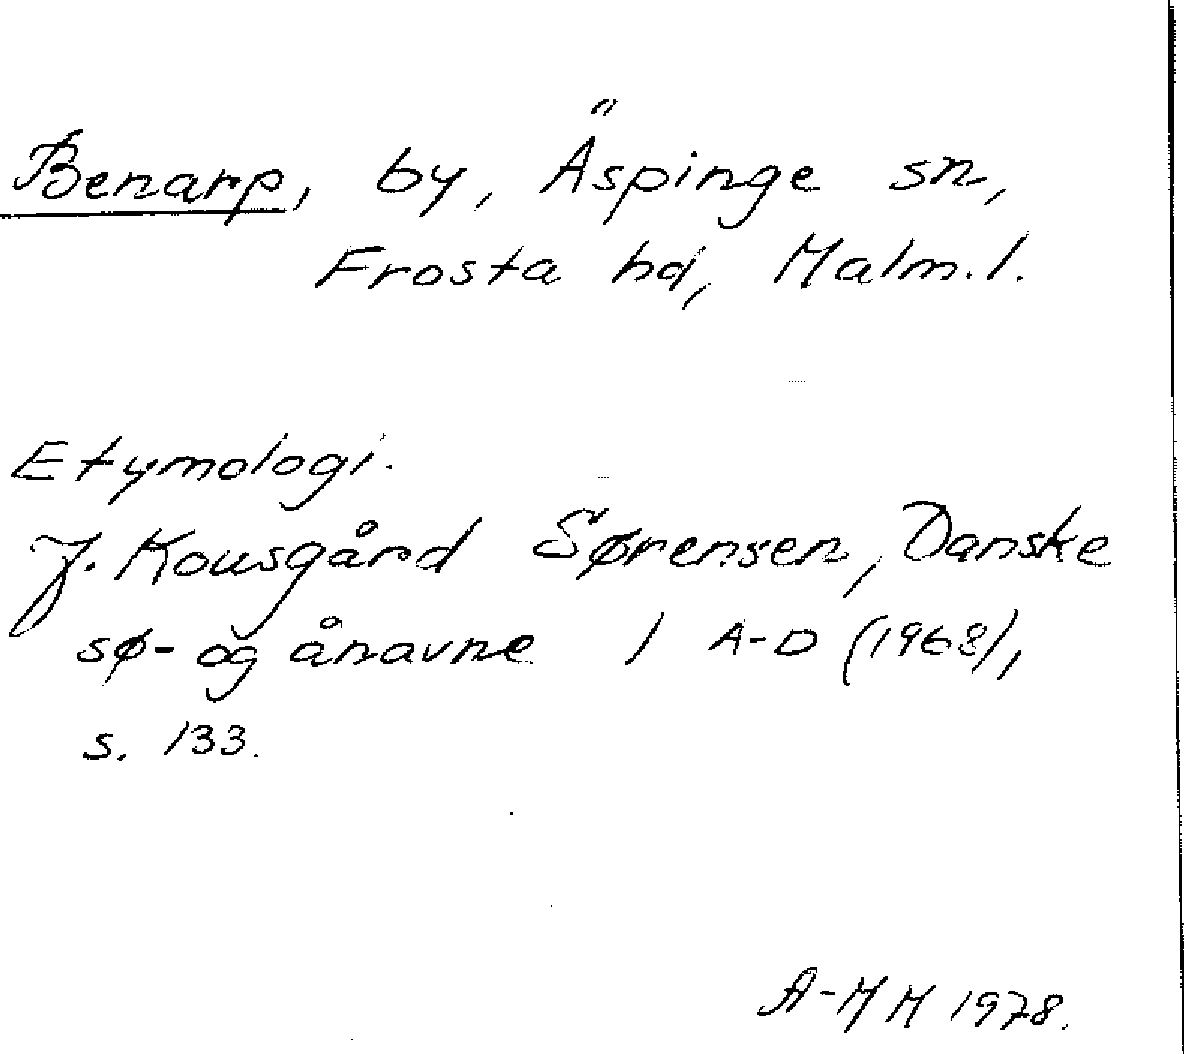 Benarp, by, Äspinge sn,
Frosta hd, Malm.l.
Etymologi.
J. Kousgård Sørensen, Danske
sø- og ånavne 1 A-D (1968),
s. 133.
A-MM 1978.